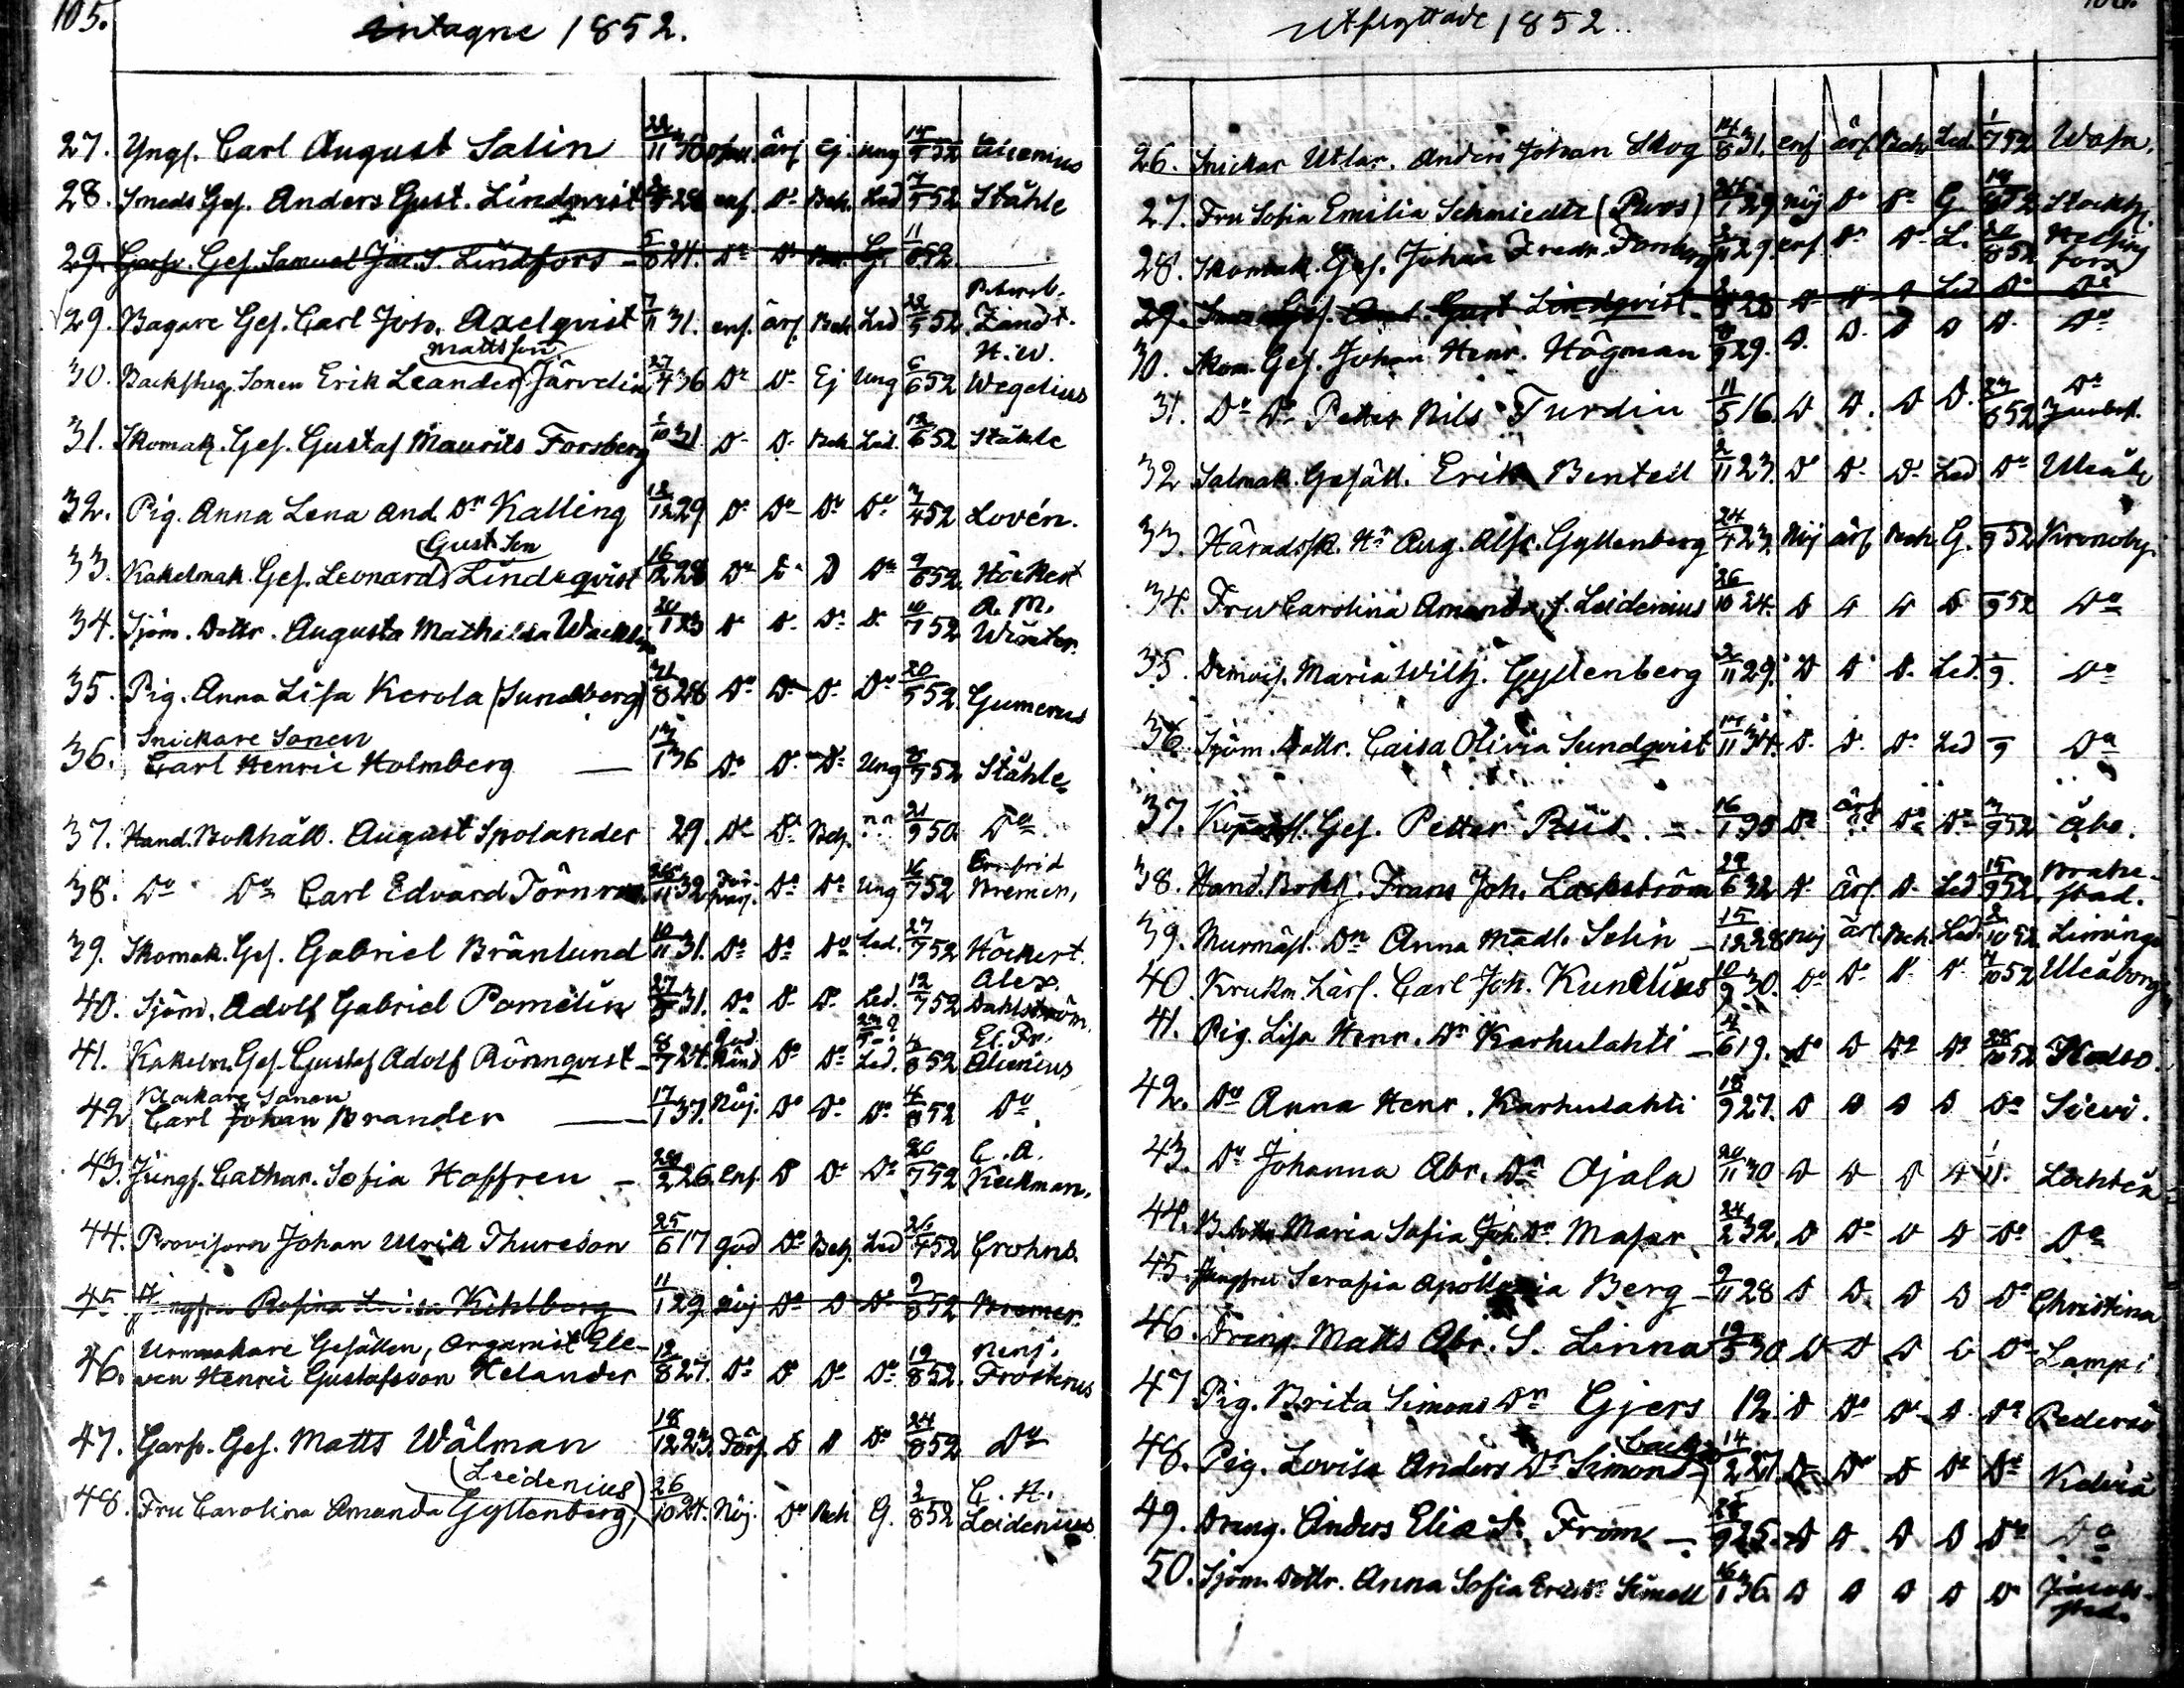 105.
intagne 1852.
27. Yngl. Carl August Salin 22/11 ärf Ej. ung 52
28. Smeds Ges. Anders Gust. Lindqvist 28 enf. Do Beh. Led 7/5 52 Ståhle
29. Garfv. Ges. Samuel Jac. S. Lindfors 5/8 24. Do Do G. 11 52
29. Bagare Ges. Carl Joh. Axelqvist 7/11 31. enf. ärf. Beh Led 22/5 52 Zandt.
Mattsson H. W.
30. Sonen Erik Leander Järvelin 27/4 36 Do Do Ej Ung 6/6 52 Wegelius
31. Skomak. Ges. Gustaf Maurits Forsberg 10 31. Do Do Beh Led. 12/6 52 Ståhle
32. Pig. Anna Lena And. Dr Kalling 12/12 29 Do Do Do Do 7/4 52 Lovén.
Gust. Son
33. Kakelmak. Ges. Leonard Lindeqvist 16/12 28 Do Do D Do 9/6 52. Höckert
A. M.
34. Sjöm. Dottr. Augusta Mathilda 20/1 23 Do Do Do 10/7 52 Winter.
35. Pig. Anna Lisa Kerola (Sundberg) 31/8 28 Do Do Do Do 20/5 52. Gumerus
Snickare Sonen
36. Carl Henric Holmberg 13/1 36 Do Do Do Ung 7 52 Ståhle
37. Hand. Bokhåll. August Spolander 29. Do Do Beh. 21/9 50. Do
38. Do Do Carl Edvard 26/11 32 Do Do Ung 16/7 52 Bremer,
39. Skomak. Ges. Gabriel Brånlund 10/11 31. Do Do Do Led. 27/7 52 Höckert.
Alex.
40. Sjöm. Adolf Gabriel Pomelin 27 31. Do Do Do Led. 12/7 52 Dahlström.
El. Fr.
41. Kakelm. Ges. Gustaf Adolf Rönnqvist 8/7 24. Do Do Led. 4/8 52 Alcenius
Klockare Sonen
42 Carl Johan Brander 17/1 37. Nöj. Do Do Do 4/8 52 Do
C. A.
43. Jungf. Cathar. Sofia Hoffren 2 26. enf. D Do Do 26/7 52 Keckman,
44. Provisorn Johan Ulrik Thureson 25/6 17 god Do Beh. Led 26/7 52 Crohns.
45 Jungfru Rosina Lovisa Kihlberg 11/1 29 nöj Do D Do 9/8 52 Bremer.
Urmakare Gesällen, Organist Ele-
46. ven Henric Gustafsson Helander 12/8 27. Do Do Do Do 19/8 52. Frosterus
47. Garfv. Ges. Matts Wälman 18/12 23. D D Do 24/8 52 Do
(Leidenius) C. H.
48. Fru Carolina Amanda Gyllenberg, 26/10 24. Nöj. Do Beh G. 2/8 52 Leidenius
utflyttade 1852.
26. Snickar Utlär. Anders Johan Skog 14/8 31. enf ärf. Beh Led. 1/7 52 Wasa.
27. Fru Sofia Emilia Schmiedte 29 nöj Do Do G. 52 Stockh.
28. Skomak. Ges. Johan Fredr. Forsberg 11 29. enf Do Do L. 8 52 Helsing
fors
29. Ges. And. Gust Lindqvist 28 Led Do Do
30. Skom. Ges. Johan Henr. Högman 9 29. D. D. D D D. Do
31. Do Do Petter Nils Turdin 11/5 16. D D. D D. 23/8 52 Do
32 Salmak. Gesäll. Erik Benteil 2/11 23. Do Do Do Led Do Uleåb
33. Häradssk. Hr Aug. Alfr. Gyllenberg 24/4 23. Nöj ärf Beh. G. 9 52 Kronoby.
34. Fru Carolina Amanda, f. Leidenius 26/10 24. D D D D 9 52 Do
35. Demois. Maria Wilh. Gyllenberg 11 29. D D D. Led. 9. Do
36 Sjöm. Dottr. Caisa Olivia Sundqvist 14/11 34. D. D. Do Led 9 Do
37. Ges. Petter Riis. 16/1 30 Do ärf Do Do 3/9 52 Åbo.
38. Hand. Bokh. Frans Joh. Lackström 24/6 32 D. Ärf D. Led 15/9 52. Brahe-
stad.
39. Murmäst. Dr Anna Madl. Solin 15/12 28 nöj ärf. Beh. Led. 2/10 52. Liminga
40. Krukm. Lärl. Carl Joh. Kunelius 10/9 30. Do Do D. D. 7/10 52 Uleåborg
41. Pig. Lisa Henr. Dr Karhulahti 4/6 19. Do D Do Do 10 52
42. Do Anna Henr. Karhulahti 18/9 27. D D D D Do Sievi.
43. Do Johanna Abr. Dr Ojala 20/11 30 D D D D 1/11. Lochteå
44. Maria Sofia Joh. Dr Masar 24/2 32. D Do D D Do Do
45. Jungfru Serafia Apollonia Berg 9/11 28 D D. D D Do Christina
46. Dreng. Matts Abr. S. Linna 19/5 30 D D D D Do Lampi
47 Pig. Brita Simons Dr Gjers 12. D Do Do D Do Pedersö
48. Pig. Lovisa Anders Dr Simon 14/2 27. D Do D Do Do Kelviå
49. Dreng. Anders Elias S. From 9 25. D D D D Do Do
50. Sjöm. Dottr. Anna Sofia Simell 16/1 36. D D D D Do Jacob-
stad.